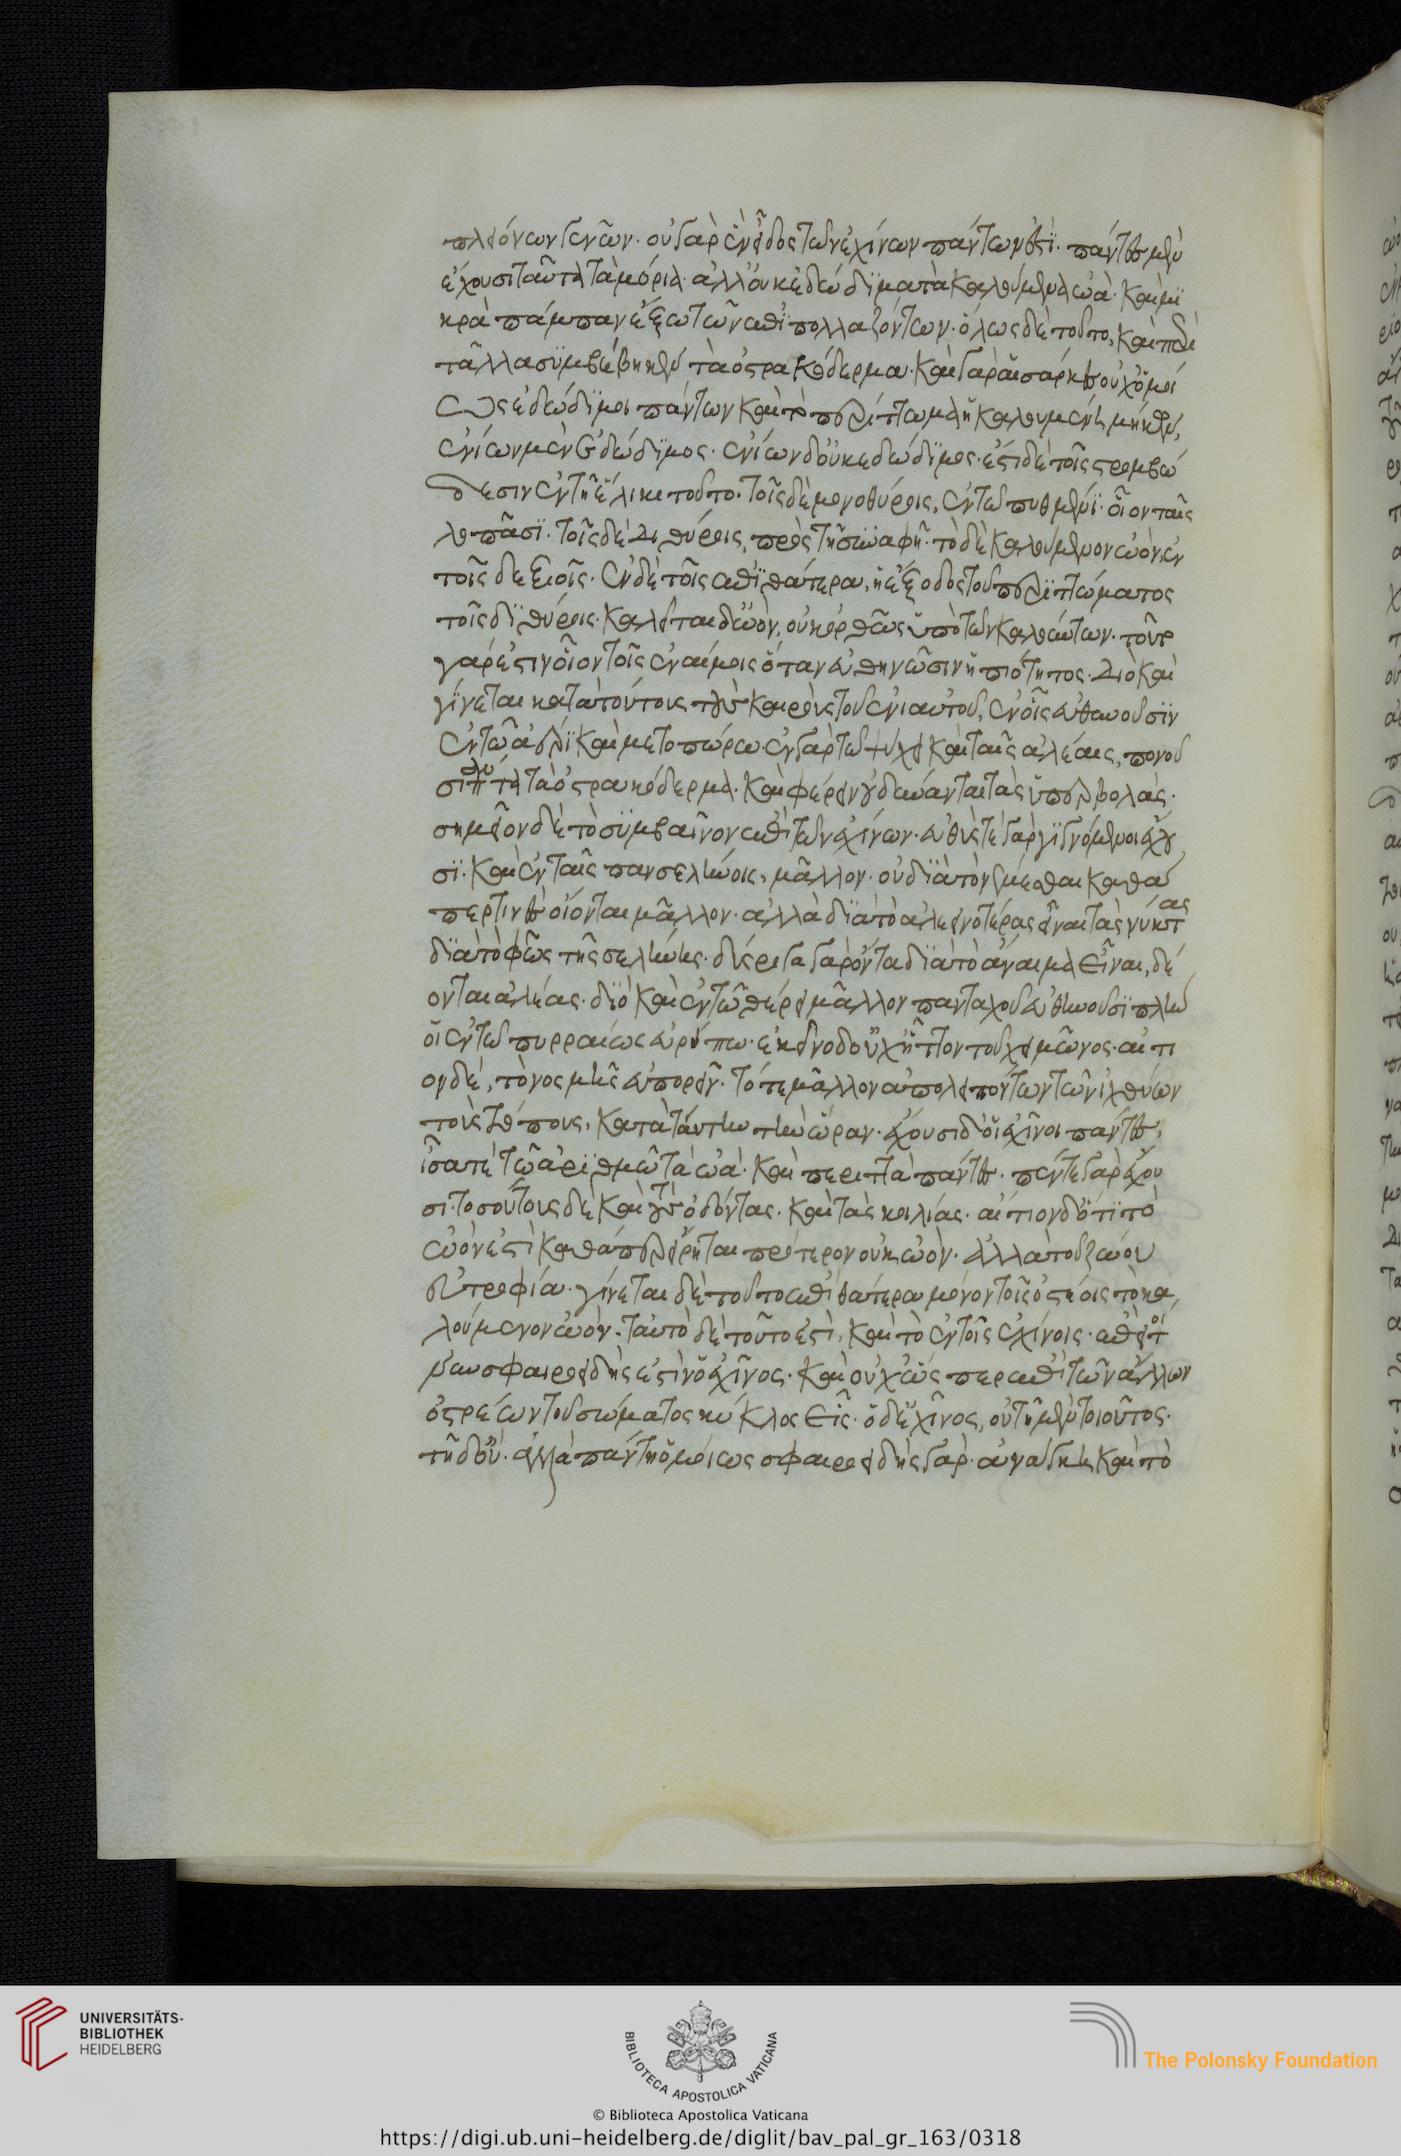 πλειόνων γενῶν· οὐ γὰρ ἓν εἶδος τῶν ἐχίνων πάντων ἐστί· πάντες μὲν
ἔχουσι ταῦτα τὰ μόρια· ἀλλ' οὐκ ἐδώδιμα τὰ καλούμενα ὠά· καὶ μι
κρὰ πάμπαν ἔξω τῶν ἐπιπολλαζόντων· ὅλως δὲ τοῦτο, καὶ περὶ
τἆλλα συμβέβηκεν τὰ ὀστρακόδερμα· καὶ γὰρ αἱ σάρκες οὐχ ὁμοί
ως ἐδώδιμοι πάντων καὶ τὸ περίττωμα ἡ καλουμένη μήκων,
ἐνίων μὲν ἐδώδιμος· ἐνίων δ' οὐκ ἐδώδιμος· ἔστι δὲ τοῖς στρομβώ
δεσιν ἐν τῇ ἑλίκι τοῦτο· τοῖς δὲ μονοθύροις, ἐν τῷ πυθμένι· οἷον ταῖς
λεπάσι· τοῖς δὲ διθύροις, πρὸς τῇ συναφῇ· τὸ δὲ καλούμενον ὠὸν ἐν
τοῖς δεξιοῖς· ἐν δὲ τοῖς ἐπὶ θάτερα, ἡ ἔξοδος τοῦ περιττώματος
τοῖς διθύροις· καλεῖται δ' ὠὸν, οὐκ ὀρθῶς ὑπὸ τῶν καλούντων· τοῦτο
γάρ ἐστιν οἷον τοῖς ἐναίμοις ὅταν εὐθηνῶσιν ἡ πιότητος· διὸ καὶ
γίνεται κατὰ τούτους τοὺς καιροὺς τοῦ ἐνιαυτοῦ, ἐν οἷς εὐθηνοῦσιν
ἐν τῷ ἀέρι καὶ μετοπώρω· ἐν γὰρ τῷ ψύχει καὶ ταῖς ἀλέαις, πονοῦ
σι πάντα τὰ ὀστρακόδερμα· καὶ φέρειν οὐ δύνανται τὰς ὑπερβολάς·
σημεῖον δὲ τὸ συμβαῖνον ἐπὶ τῶν ἐχίνων· εὐθύς τε γὰρ γιγνόμενοι ἔχου
σι· καὶ ἐν ταῖς πανσελήνοις, μᾶλλον· οὐ διὰ τὸ νέμεσθαι καθά
περ τινὲς οἴονται μᾶλλον· ἀλλὰ διὰ τὸ ἀλεεινοτέρας εἶναι τὰς νύκτας
διὰ τὸ φῶς τῆς σελήνης· δύσριγα γὰρ ὄντα διὰ τὸ ἄναιμα εἶναι, δέ
ονται ἀλέας· διὸ καὶ ἐν τῷ θέρει μᾶλλον πανταχοῦ εὐθηνοῦσι πλὴν
οἱ ἐν τῷ πυρραίως εὐρίπω· ἐκεῖνοι δ' οὐχ ἧττον τοῦ χειμῶνος· αἴτι
ον δέ, τὸ νομῆς εὐπορεῖν· τότε μᾶλλον ἀπολειπόντων τῶν ἰχθύων
τοὺς τόπους, κατὰ ταύτην τὴν ὥραν· ἔχουσι δ' οἱ ἐχῖνοι πάντες,
ἴσα τε τῷ ἀριθμῷ τὰ ὠά· καὶ περιττὰ πάντες· πέντε γὰρ ἔχου
σι· τοσούτους δὲ καὶ τοὺς ὀδόντας· καὶ τὰς κοιλίας· αἴτιον δ' ὅτι τὸ
ὠὸν ἐστὶ καθάπερ εἴρηται πρότερον οὐκ ὠὸν· ἀλλὰ τοῦ ζώου
εὐτροφία· γίνεται δὲ τοῦτο ἐπὶ θάτερα μόνον τοῖς ὀστρέοις τὸ κα
λούμενον ὠὸν· ταὐτὸ δὲ τοῦτο ἐστὶ, καὶ τὸ ἐν τοῖς ἐχίνοις· ἐπεὶ τοί
νυν σφαιροειδής ἐστὶν ὁ ἐχῖνος· καὶ οὐχ ὥσπερ ἐπὶ τῶν ἄλλων
ὀστρέων τοῦ σώματος κύκλος εἷς· ὁ δ' ἐχῖνος, οὐ τῇ μὲν τοιοῦτος·
τῇ δ' οὔ· ἀλλὰ πάντῃ ὁμοίως σφαιροειδὴς γάρ· ἀνάγκη καὶ τὸ
UNIVERSITÄTS-
BIBLIOTHEK
HEIDELBERG
BIBLIOTECA APOSTOLICA VATICANA
The Polonsky Foundation
© Biblioteca Apostolica Vaticana
https://digi.ub.uni-heidelberg.de/diglit/bav_pal_gr_163/0318